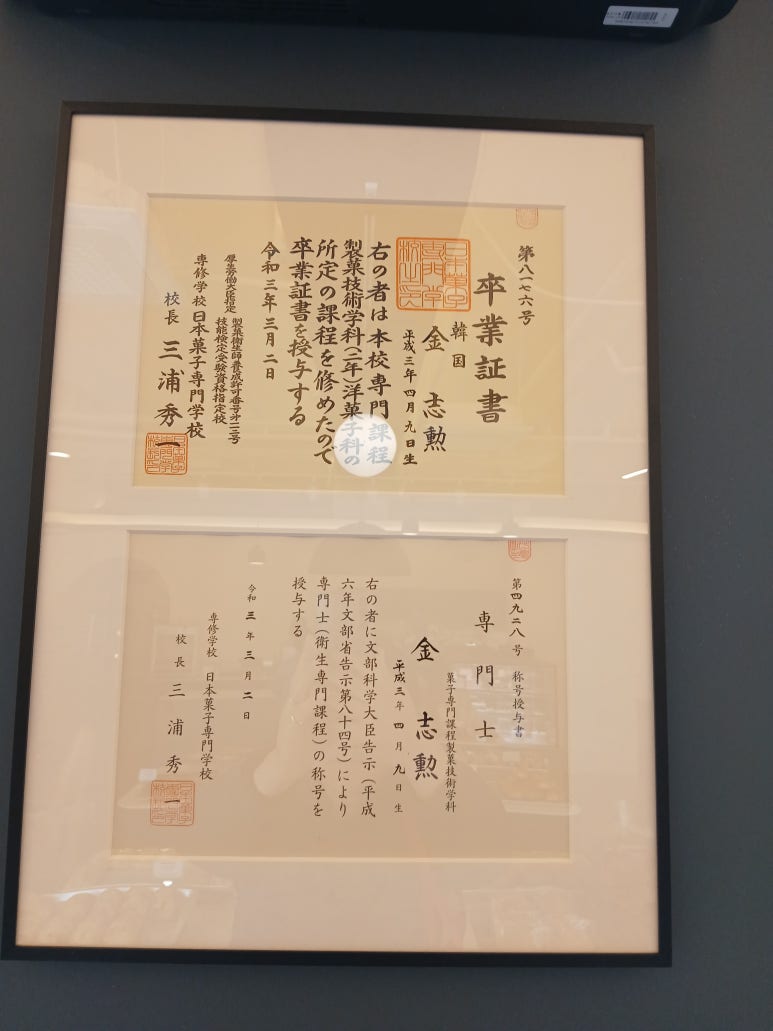 第八一七六号
卒業証書
韓国
金志勲
平成三年四月九日生
右の者は本校専門課程
製菓技術学科(二年)洋菓子科の
所定の課程を修めたので
卒業証書を授与する
令和三年三月二日
厚生労働大臣指定
製菓衛生師養成許可番号第二三号
技能検定受験資格指定校
専修学校日本菓子専門学校
校長 三浦秀一
第四九二八号 称号授与書
専門士
菓子専門課程製菓技術学科
金志勲
平成三年四月九日生
右の者に文部科学大臣告示(平成
六年文部省告示第八十四号)により
専門士(衛生専門課程)の称号を
授与する
令和三年三月二日
専修学校 日本菓子専門学校
校長 三浦秀一